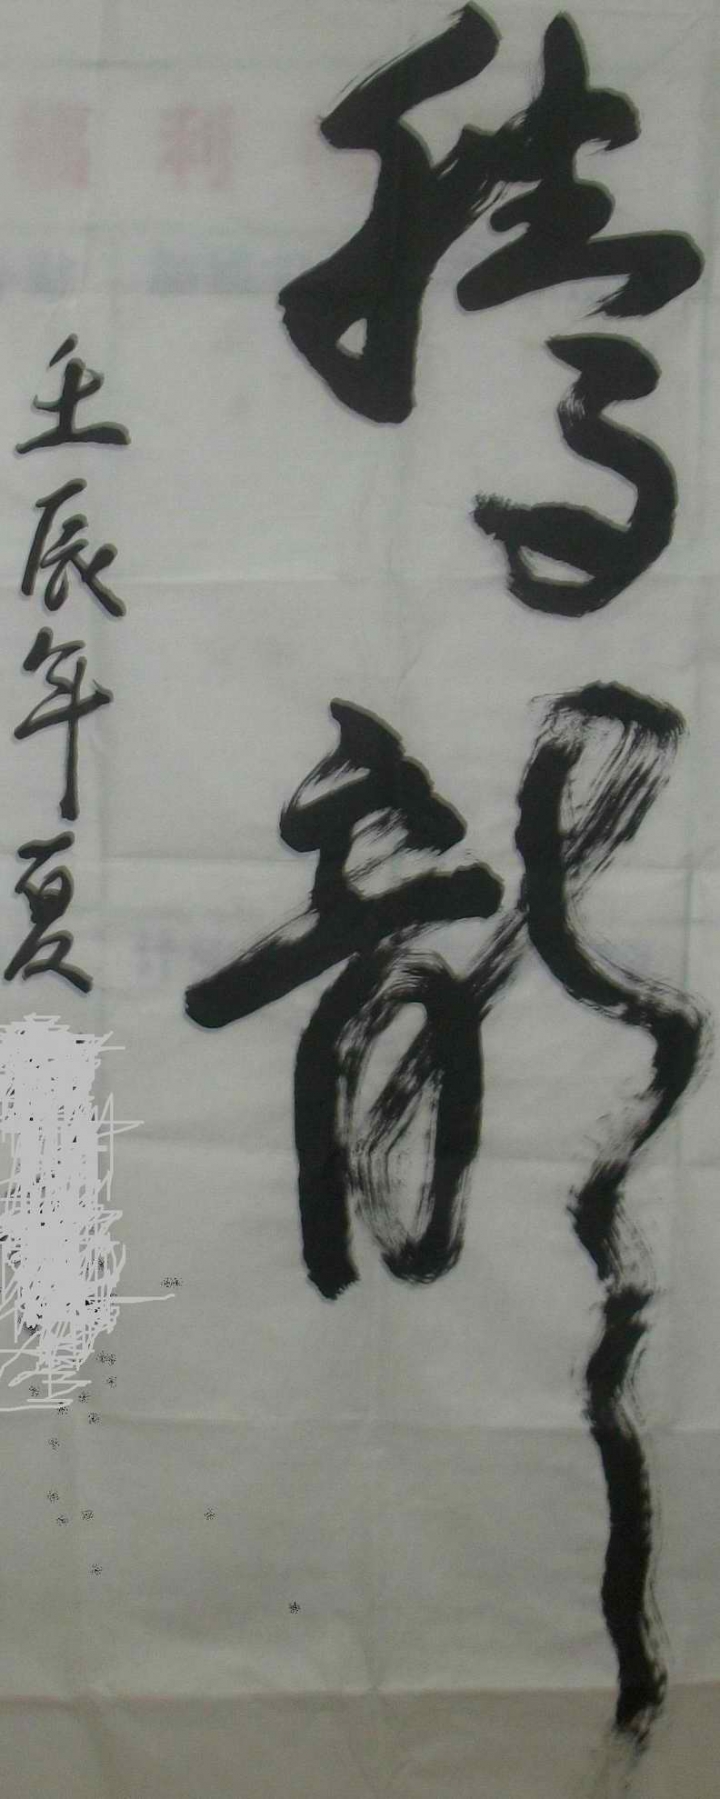 腾龙
壬辰年夏